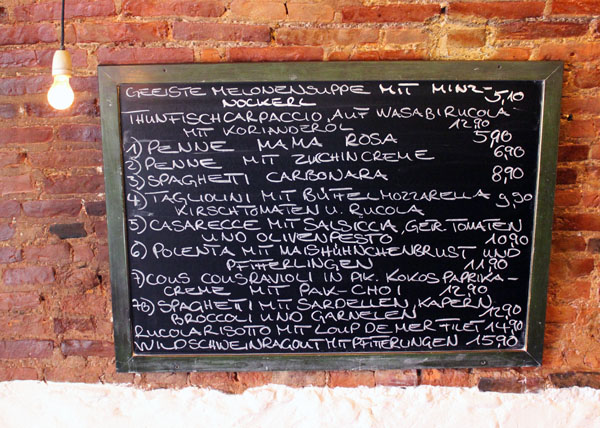 GEEISTE MELONENSUPPE MIT MINZ-
NOCKERL 5,10
THUNFISCHCARPACCIO, AUF WASABIRUCOLA
MIT KORIANDERÖL 12.90
1) PENNE MAMA ROSA 5,90
2) PENNE MIT ZUCHINCREME 6,90
3) SPAGHETTI CARBONARA 8,90
4) TAGLIOLINI MIT BÜFFELMOZZARELLA 9,90
KIRSCHTOMATEN U. RUCOLA
5) CASARECCE MIT SALSICCIA, GETR. TOMATEN
UND OLIVENPESTO 10.90
6) POLENTA MIT MAISHÜHNCHENBRUST UND
PFIFFERLINGEN 11.90
7) COUS COUS RAVIOLI IN PIK. KOKOS PAPRIKA-
CREME MIT PAK-CHOI 12.90
78) SPAGHETTI MIT SARDELLEN, KAPERN
BROCCOLI UND GARNELEN 12.90
RUCOLARISOTTO MIT LOUP DE MER FILET 14.90
WILDSCHWEINRAGOUT MIT PFIFFERLINGEN 15.90